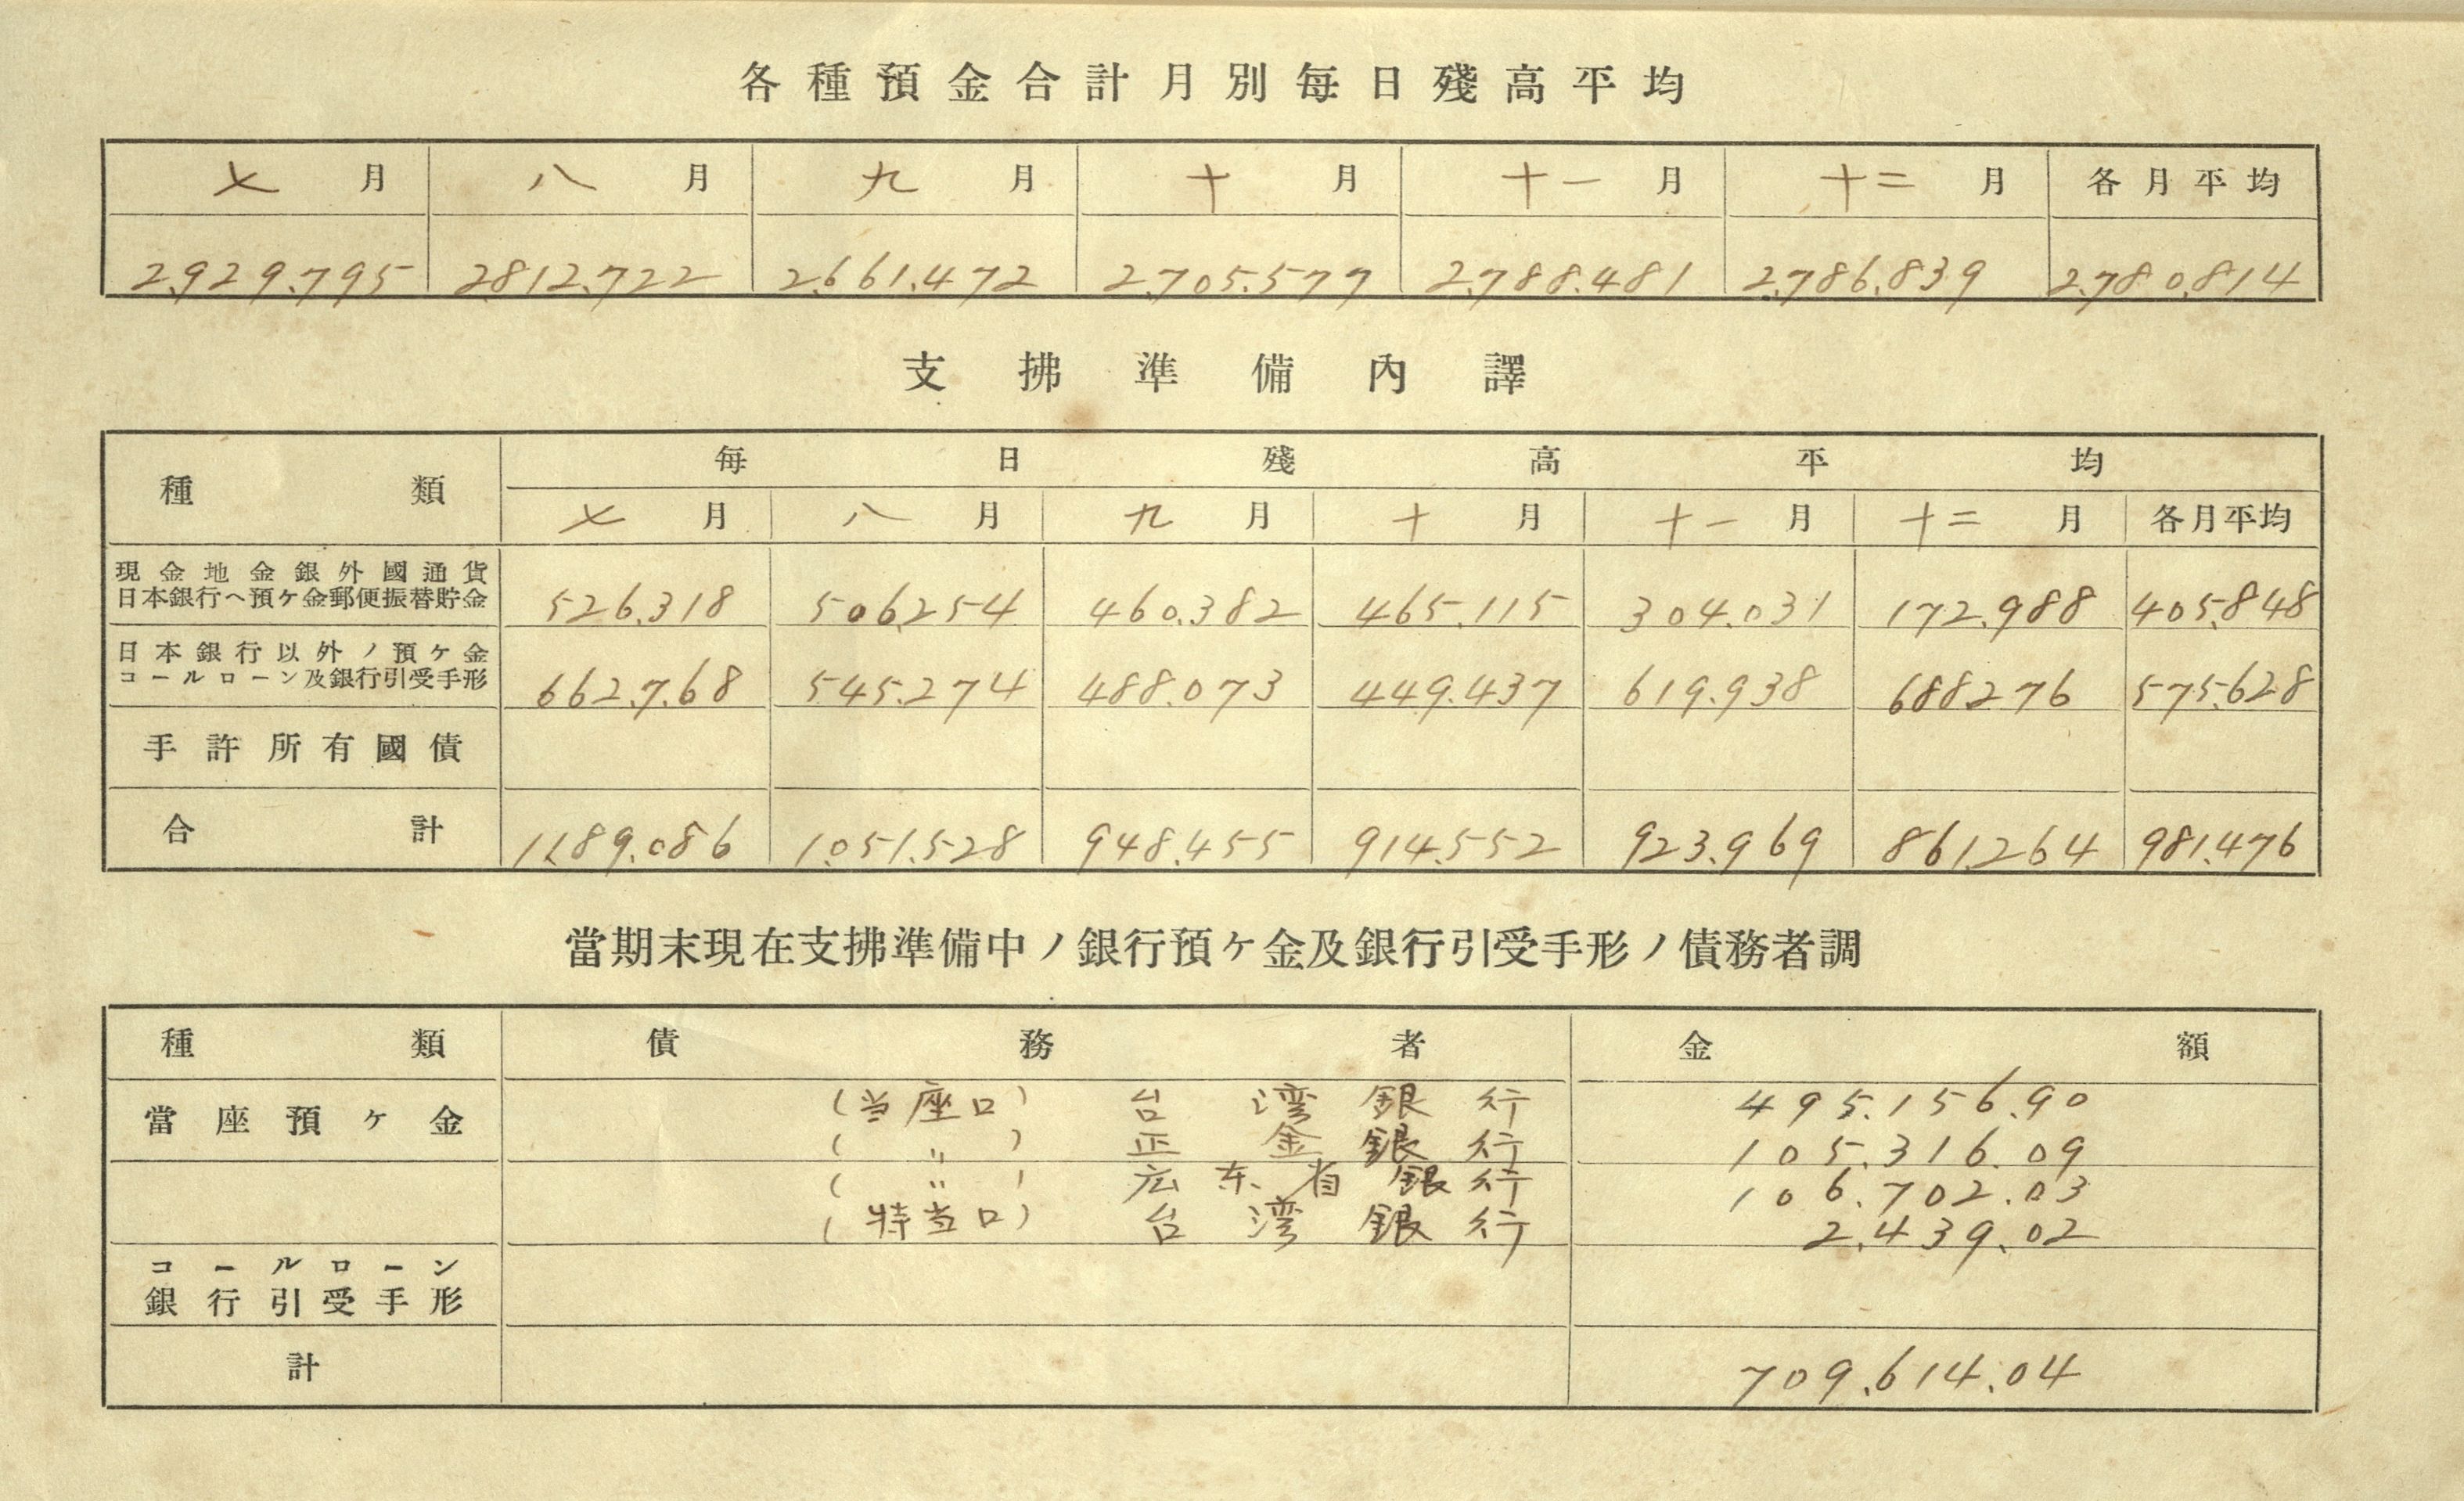 各種預金合計月別每日殘高平均
七月 八月 九月 十月 十一月 十二月 各月平均
2,929.795 2812.722 2,661.472 2.705.577 2,788.481 2,786.839 2,780.814
支拂準備內譯
種類 每日殘高平均
七月 八月 九月 十月 十一月 十二月 各月平均
現金地金銀外國通貨
日本銀行ヘ預ケ金郵便振替貯金 526.318 506,254 460.382 465.115 304.031 172.988 405.848
日本銀行以外ノ預ケ金
コールローン及銀行引受手形 662.7.68 545.274 488.073 449.437 619.938 688276 575.628
手許所有國債
合計 1,189.086 1.051.528 948.455 914.552 923.969 861,264 981.476
當期末現在支拂準備中ノ銀行預ケ金及銀行引受手形ノ債務者調
種類 債務者 金額
當座預ケ金 (当座口) 台湾銀行 495.156.90
( 〃 ) 正金銀行 105.316.09
( 〃 ) 広东省銀行 106.702.03
(特当口) 台湾銀行 2.439.02
コールローン
銀行引受手形
計 709.614.04